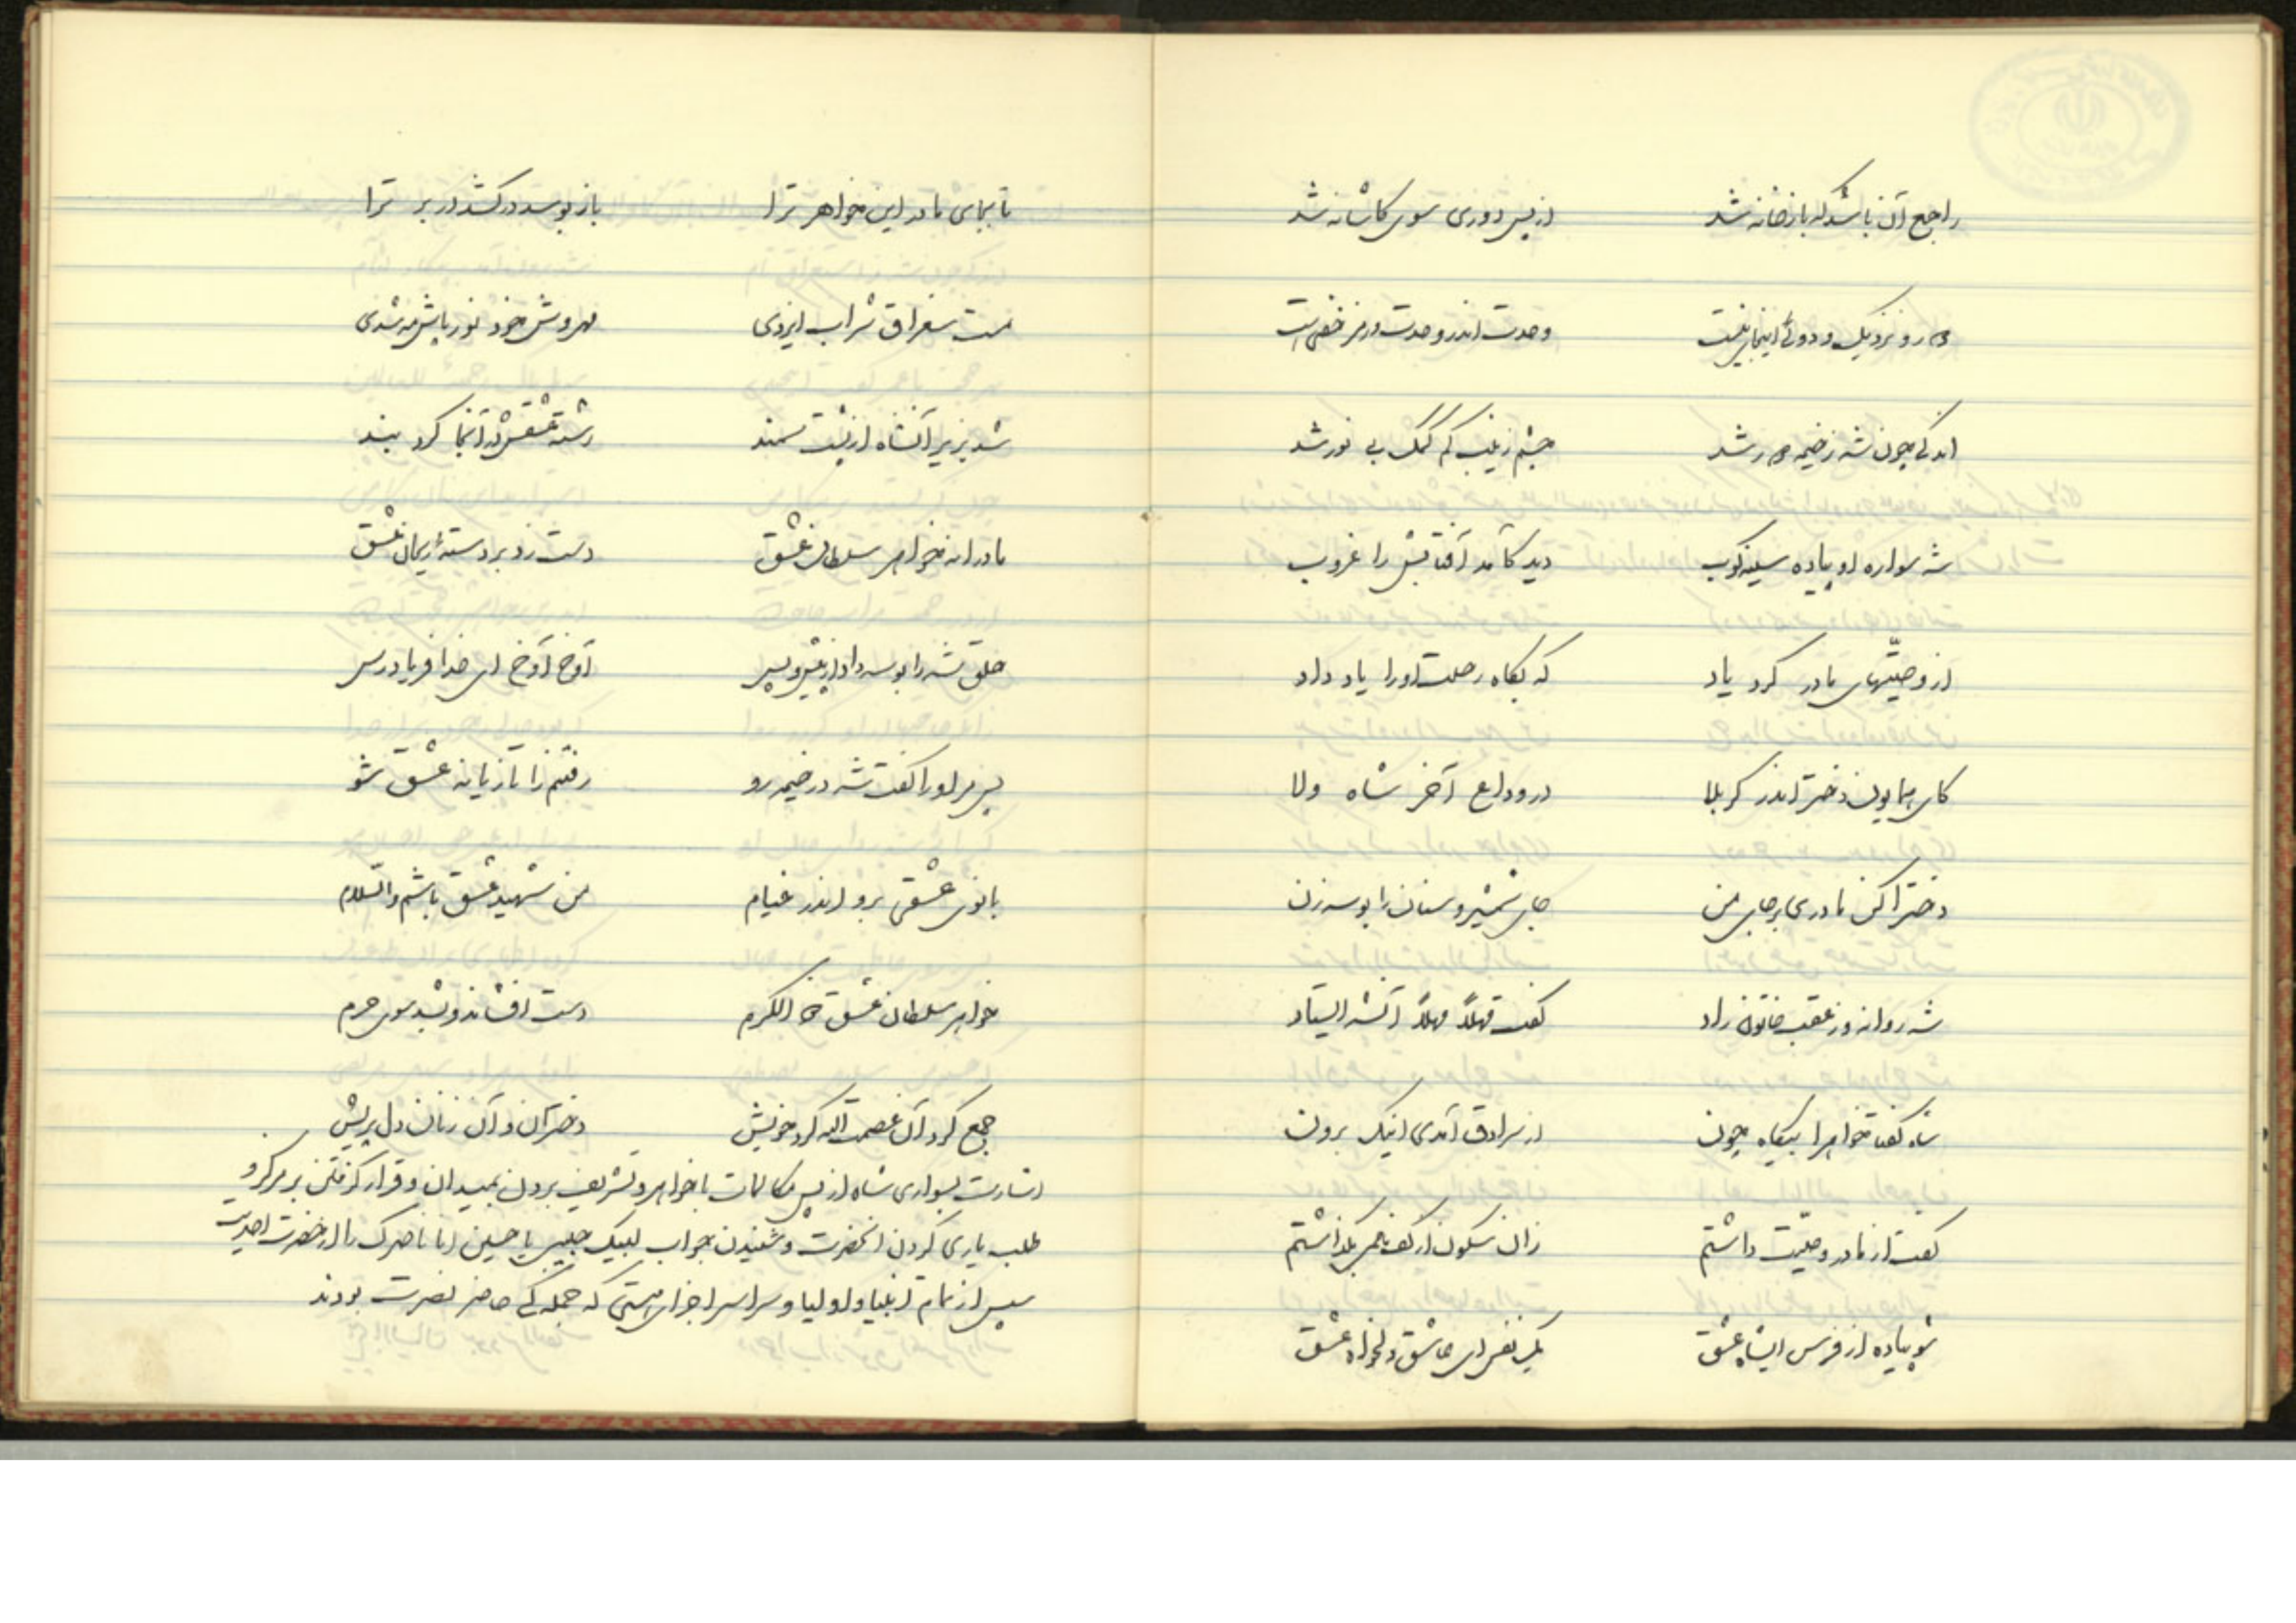 راجع آن باشد که باز خانه شد از پس دوری سوی کاشانه شد
دور و نزدیک و دوئی اینجای نیست وحدت اندر وحدت و رمز خفی است
اندکی چون شه ز خیمه دور شد چشم زینب کم کمک بی نور شد
شه سواره او پیاده سینه کوب دید کآمد آفتابش را غروب
از وصیّتهای مادر کرد یاد که بگاه رحلت او را یاد داد
کای همایون دختر اندر کربلا در وداع آخر شاه ولا
دخترا کن مادری بر جای من جای شمشیر و سنان را بوسه زن
شه روانه وز عقب خاتون راد گفت مهلاً مهلاً ای شه ایستاد
شاه گفتا خواهرا بیگاه چون از سرادق آمدی اینک برون
گفت از مادر وصیّت داشتم زان سکون از کف بگذاشتم
شو پیاده از فرس ایشاه عشق یک نفس ای عاشق دلخواه عشق
تا بجای مادر این خواهر ترا باز بوسد در کشد در بر ترا
مست سغراق شراب ایزدی مهروش خود نور پاش مه شدی
شد بزیر آنشاه از پشت سمند رشته عشقش در آنجا کرد بند
مادرانه خواهر سلطان عشق دست زد بر دستهٔ ریحان عشق
حلق شه را بوسه داد از پیش و پس آوخ آوخ ای خدا فریاد رس
پس مر او را گفت شه در خیمه رو رفتنم را تازیانه عشق شو
بانوی عشقی برو اندر خیام من شهید عشق باشم والسّلام
خواهر سلطان عشق الکرم دست افشاند و بشد سوی حرم
جمع کرد آن عصمت الله گرد خویش دختران و آن زنان دل پریش
اشارت بسواری شاه از پس مکالمات با خواهر و تشریف بردن بمیدان و قرار گرفتن بر مرکز و
طلب یاری کردن آنحضرت و شنیدن جواب لبیک حبیبی یا حسین انا ناصرک را از حضرت احدیت
سپس از تمام انبیا و اولیا و سراسر اجزای هستی که جملگی حاضر نصرت بودند